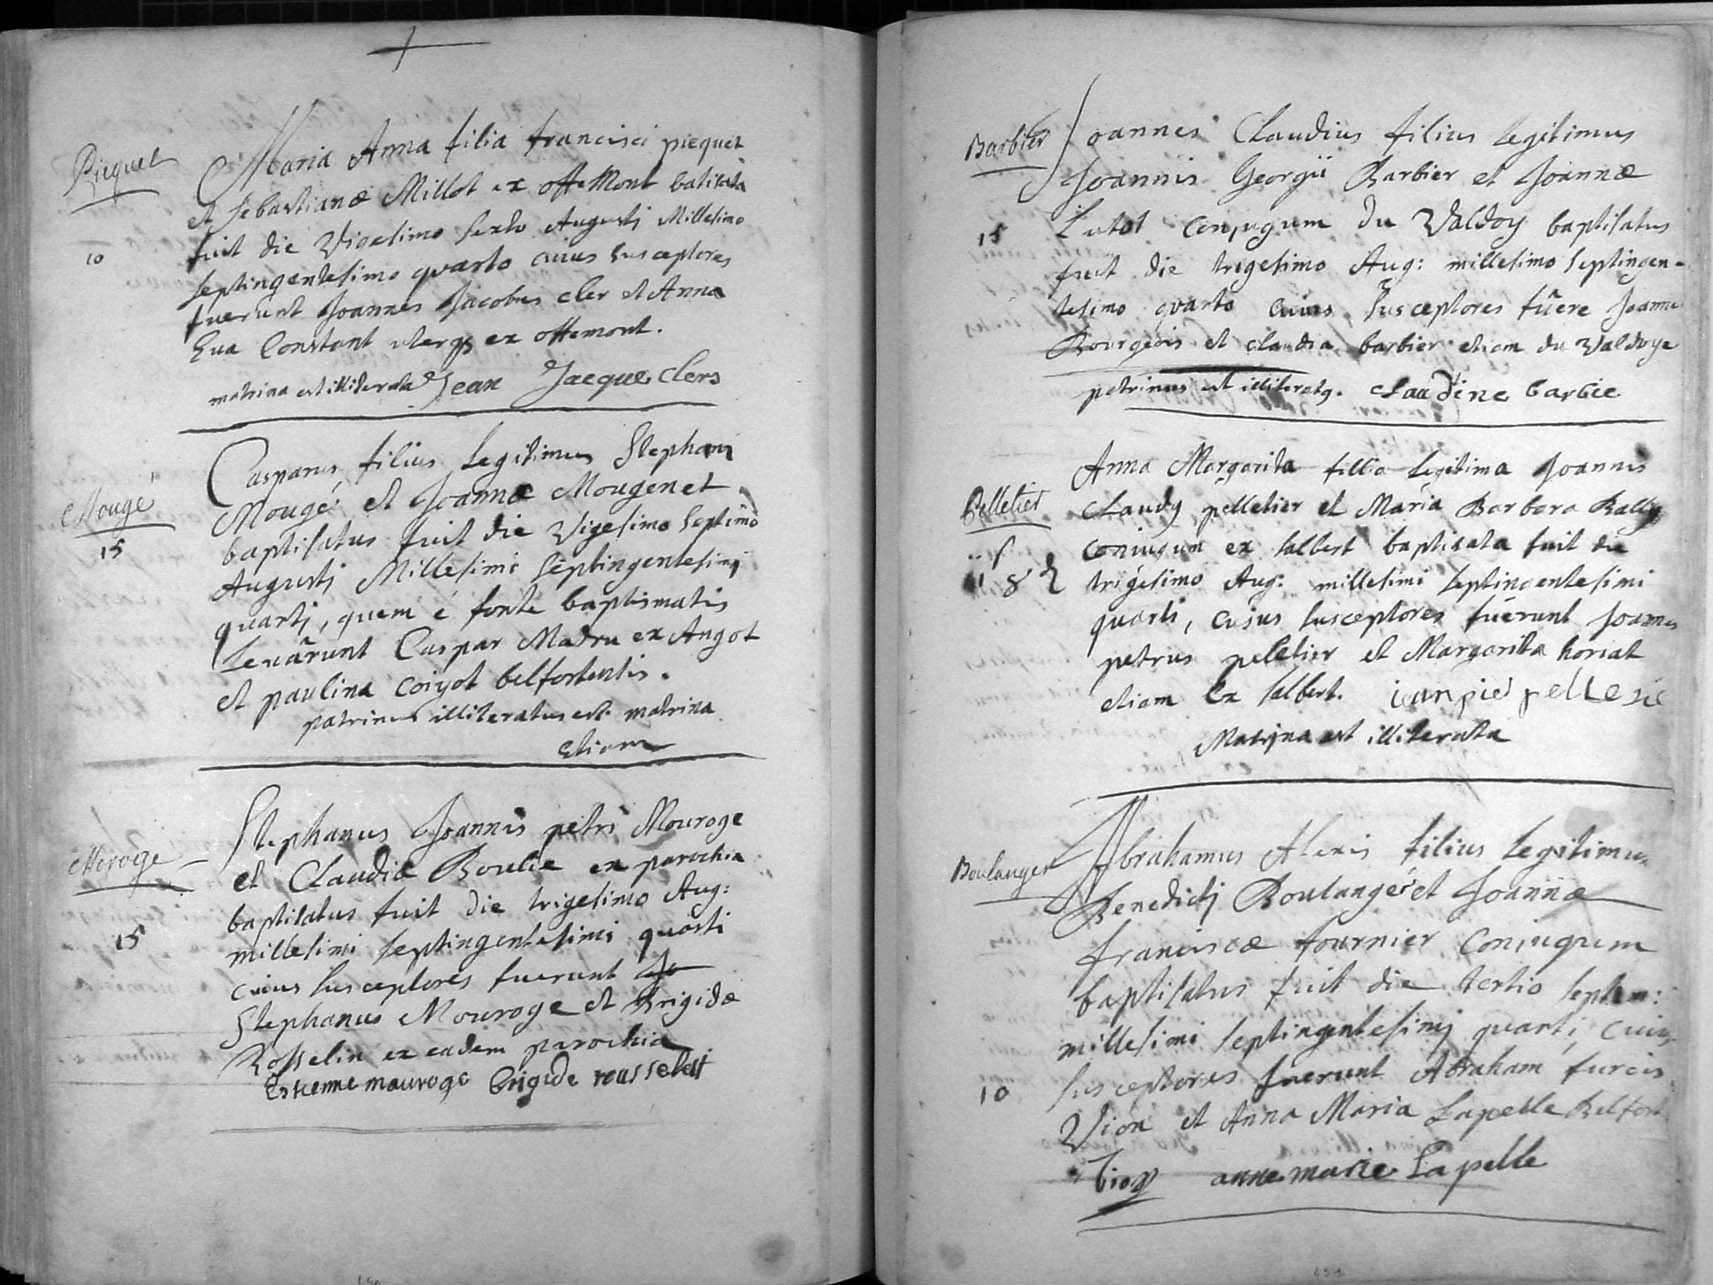 Picquet
10
Maria Anna filia francisci piequet
et sebastianæ Millot ex offemont batisata
fuit die Vigesimo sexto Augustj Millesimo
septingentesimo quarto cuius susceptores
fuerunt Joannes Jacobus cler et Anna
Eua Constant uterqs ex offemont.
matrina est illiterata Jean Jacque Clers
Mougé
15
Casparus filius Legitimus Stephani
Mougé et Joannæ Mougenet
baptisatus fuit die Vigesimo septimo
Augustj Millesimi septingentesimj
quartj, quem é fonte baptismatis
Leuârunt Caspar Madru ex Angot
et paulina coiyot belfortentis.
patrinus illiteratus est. matrina
etiam
Meroge
15
Stephanus Joannis petri Mouroge
et Claudiæ Boulie ex parochia
baptisatus fuit die trigesimo Aug:
millesimi septingentesimi quarti
cuius susceptores fuerunt Jo
Stephanus Mouroge et Brigidæ
Rosselin ex eadem parochia
Estienne mauroge Brigide
Barbier
15
Joannes Claudius filius legitimus
Joannis Georgii Barbier et Joannæ
Lutot conjugum du Valdoy baptisatus
fuit die trigesimo Aug: millesimo septingen-
tesimo quarto cuius susceptores fûere Joannes
Bourgeois et claudia barbier etiam du Valdoye
patrinus est illiteratq. Claudine barbie
Pelletier
Anna Margarita fillia legitima Joannis
Claudij pelletier et Maria Barbara Bally
coniugum ex salbert baptisata fuit die
trigesimo Aug: millesimi septingentesimi
quarti, cujus susceptores fuerunt Joannes
petrus peletier et Margarita horiat
etiam Ex salbert.
Matrjna est illiterata
Boulanger
10
Abrahamus Alexis filius legitimus
Benedictj Boulanger et Joannæ
franciscæ fournier coniugum
baptisatus fuit die tertio septem:
millesimi septingentesimj quarti, cuius
susceptores fuerunt Abraham
Vion et Anna Maria Lapelle Belfort
anne marie Lapelle